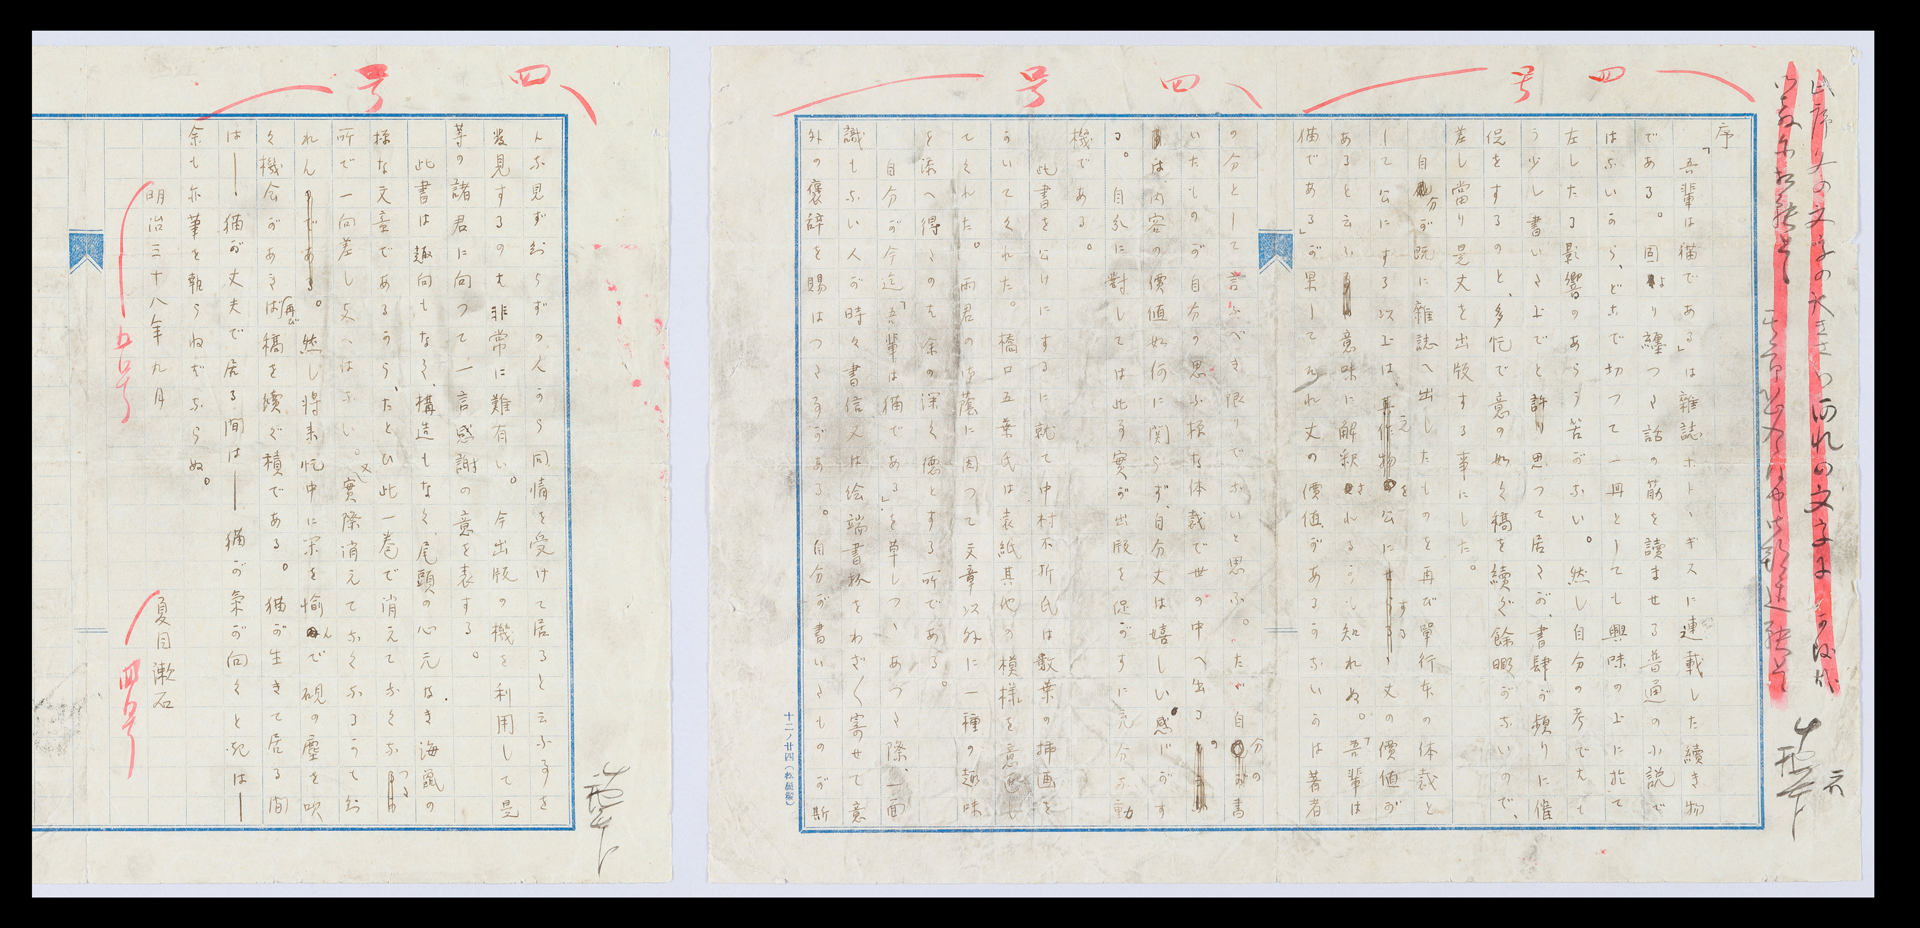 四号
四号
序
「吾輩は猫である」は雑誌ホトヽギスに連載した続き物
である。固より纏つた話の筋を讀ませる普通の小説で
はないから、どこで切つて一冊としても興味の上に於て
左したる影響のあらう筈がない。然し自分の考ではも
う少し書いた上でと許り思つて居たが、書肆が頻りに催
促をするのと、多忙で意の如く稿を續ぐ餘暇がないので、
差し當り是丈を出版する事にした。
自分が既に雜誌へ出したものを再び單行本の体裁と
して公にする以上は、之を公にする丈の價値が
あると云ふ意味に解釈されるかも知れぬ。「吾輩は
猫である」が果してそれ丈の價値があるかないかは著者
の分として言ふべき限りでないと思ふ。たゞ自分の書
いたものが自分の思ふ様な体裁で世の中へ出るのは
内容の價値如何に関らず、自分丈は嬉しい感じがす
る。自分に對しては此事實が出版を促がすに充分な動
機である。
此書を公けにするに就て中村不折氏は数葉の挿画を
かいてくれた。橋口五葉氏は表紙其他の模様を意匠し
てくれた。両君の御蔭に因つて文章以外に一種の趣味
を添へ得たるを余の深く徳とする所である。
自分が今迄「吾輩は猫である」を草しつゝあつた際、一面
識もない人が時々書信又は絵端書抔をわざ〱寄せて意
外の褒辞を賜はつた事がある。自分が書いたものが斯
十二ノ廿四(松屋製)
四号
んな見ず知らずの人から同情を受けて居ると云ふ事を
発見するのは非常に難有い。今出版の機を利用して是
等の諸君に向つて一言感謝の意を表する。
此書は趣向もなく、構造もなく、尾頭の心元なき海鼠の
様な文章であるから、たとひ此一巻で消えてなくなつた
所で一向差し支へはない。又實際消えてなくなるかも知
れん。然し将来忙中に閑を愉んで硯の塵を吹
く機会があれば再び稿を續ぐ積である。猫が生きて居る間
は――猫が丈夫で居る間は――猫が気が向くときは――
余も亦筆を執らねばならぬ。
明治三十八年九月
五号
夏目漱石
四号